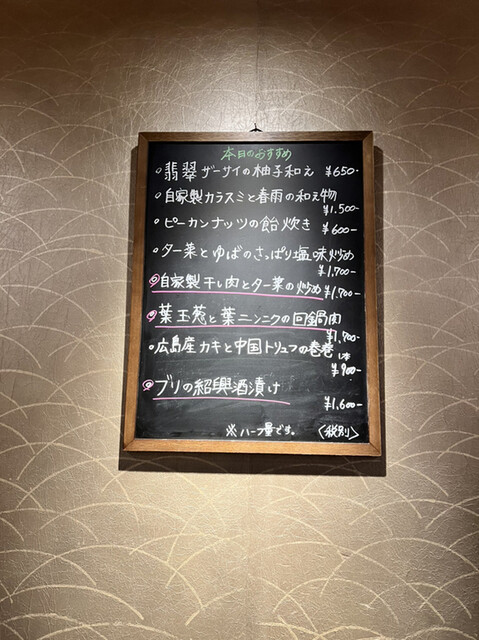 本日のおすすめ
翡翠ザーサイの柚子和え ¥650-
自家製カラスミと春雨の和え物
¥1.500-
ピーカンナッツの飴炊き ¥600-
ター菜とゆばのさっぱり塩味炒め
¥1,700-
自家製干し肉とター菜の炒め ¥1,700-
葉玉葱と葉ニンニクの回鍋肉
¥1,900-
広島産カキと中国トリュフの春巻 1本
¥900-
ブリの紹興酒漬け
¥1,600-
※ハーフ量です。 〈税別〉